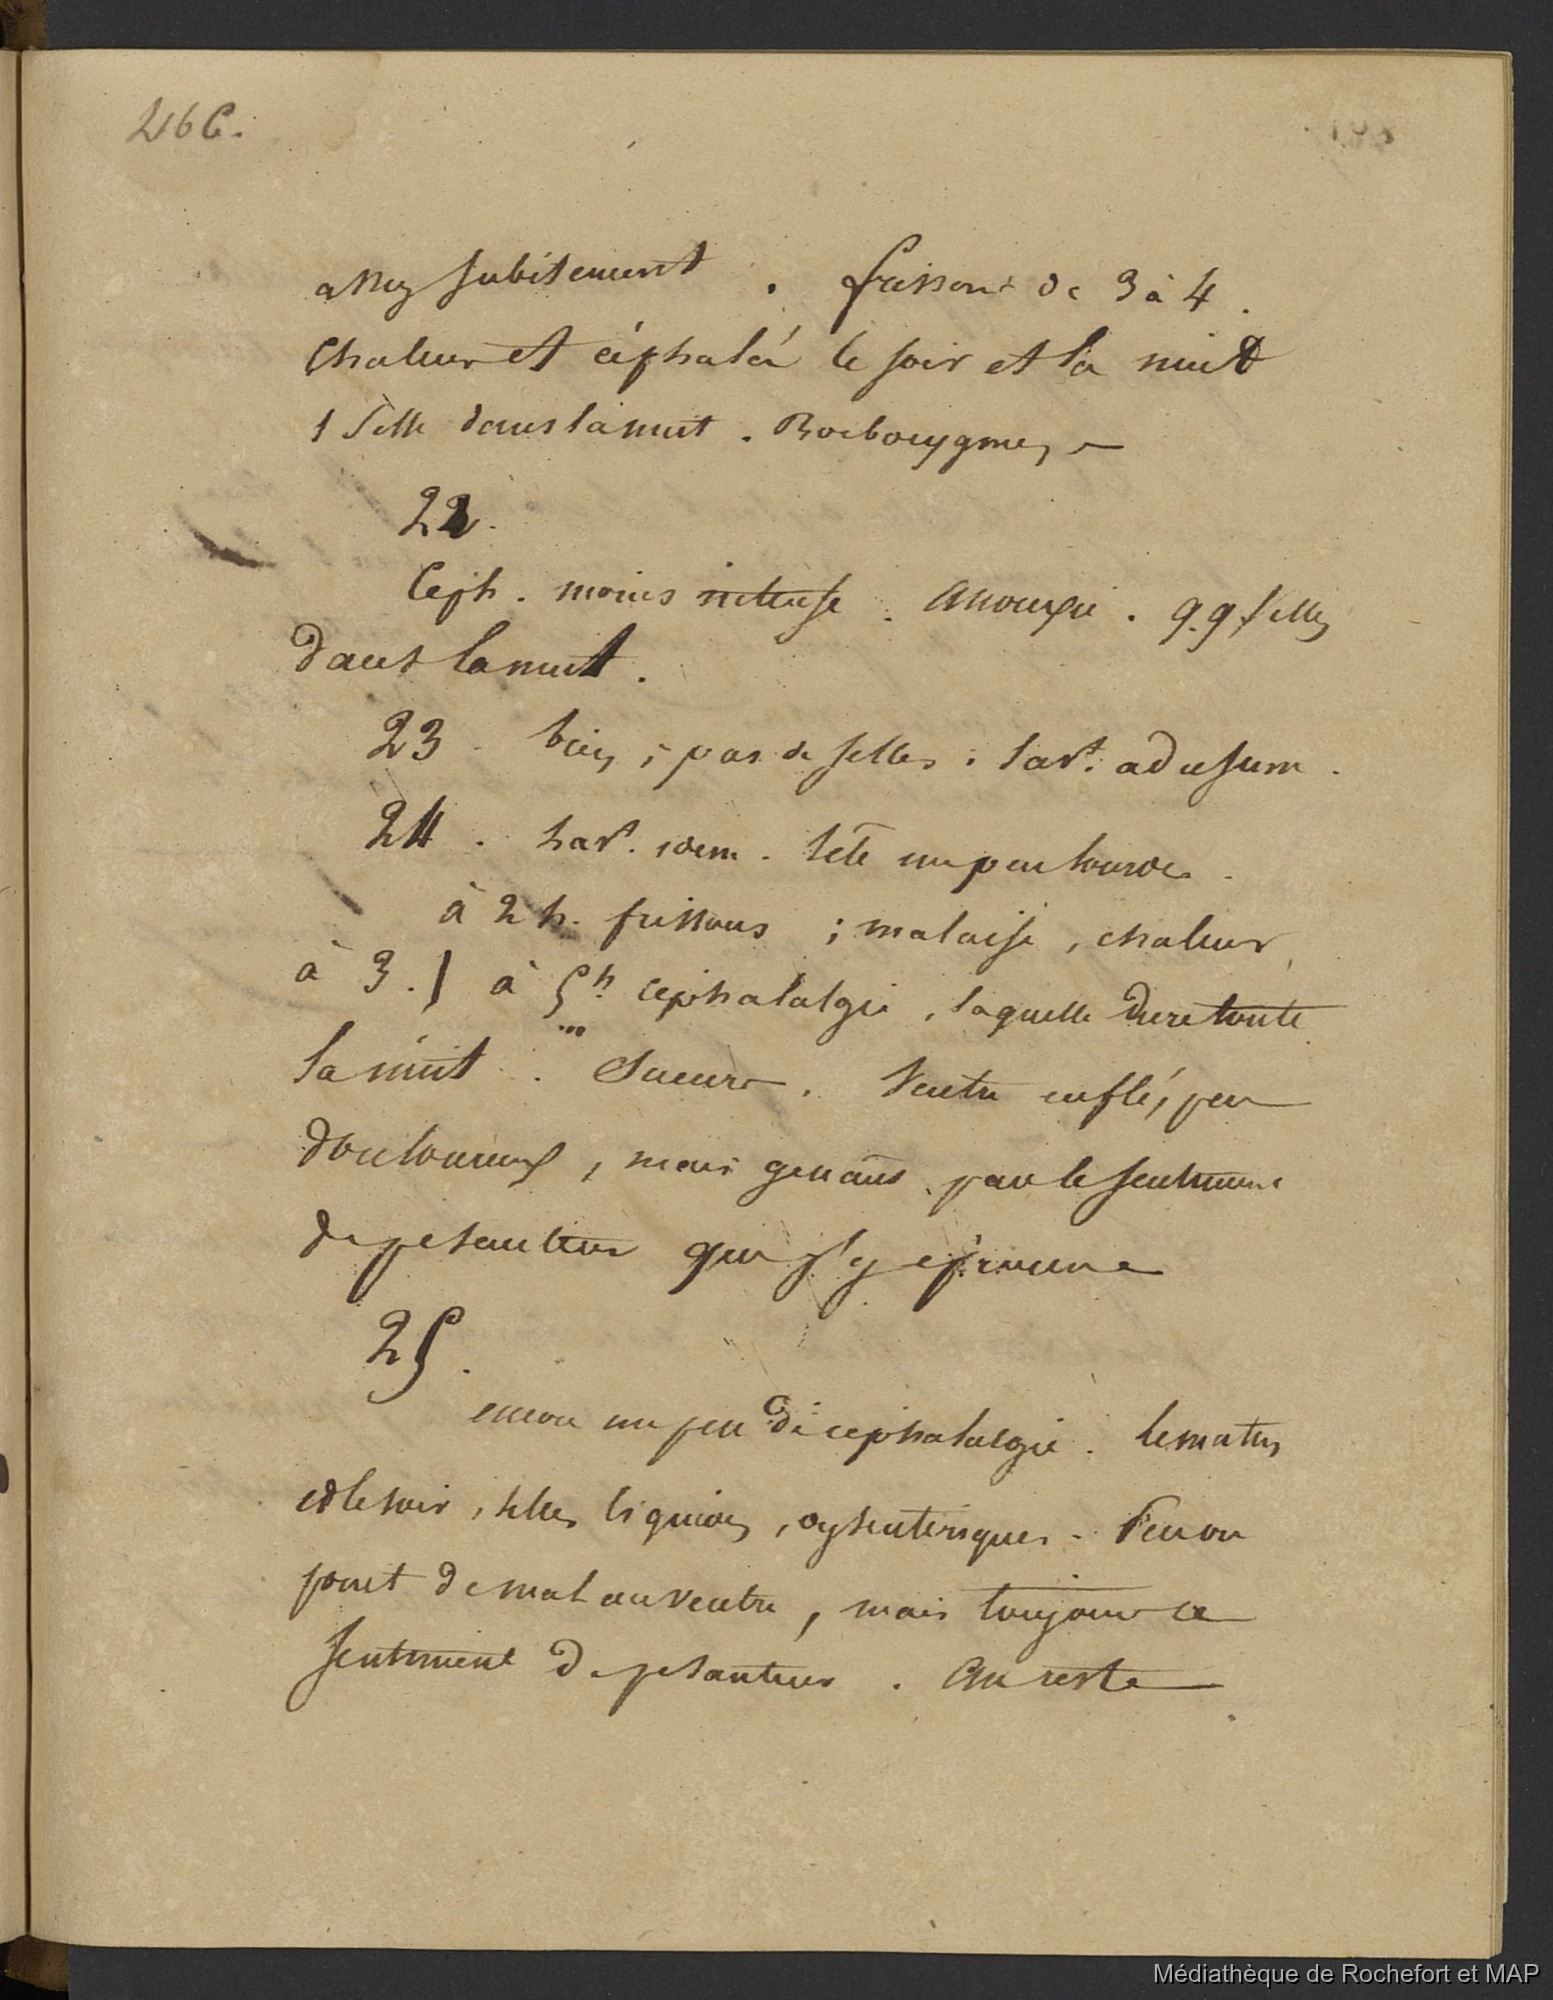 266.
assez subitement. frissons de 3 à 4.
Chaleur et céphalée le soir et la nuit
1 selle dans la nuit. Borborygmes
22.
Ceph. moins intense. Anorexie. qq selles
dans la nuit.
23 bien, pas de selles. tart. ad usum.
24. tart. idem. tête un peu lourde.
à 2 h. frissons; malaise, chaleur,
à 3. / à 5h. cephalalgie, laquelle dure toute
la nuit. Sueurs. Ventre enflé, peu
douloureux, mais genant par le sentiment
de pesanteur qui s'y éprouve
25.
encore un peu de cephalalgie. le matin
et le soir, selles liquides, dysenteriques. Peu ou
point de mal au ventre, mais toujours ce
sentiment de pesanteur. Au reste
Médiathèque de Rochefort et MAP